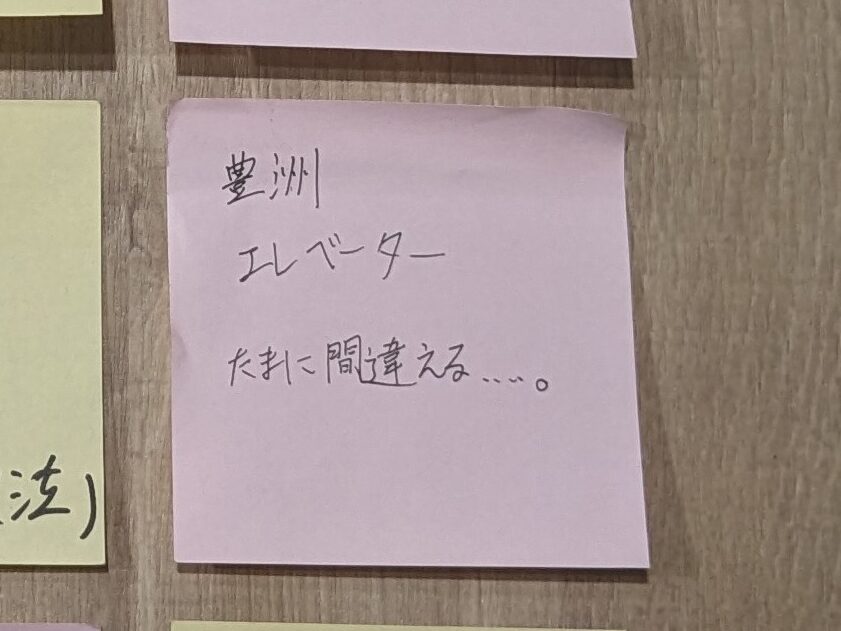 豊洲
エレベーター
たまに間違える.....。
法)